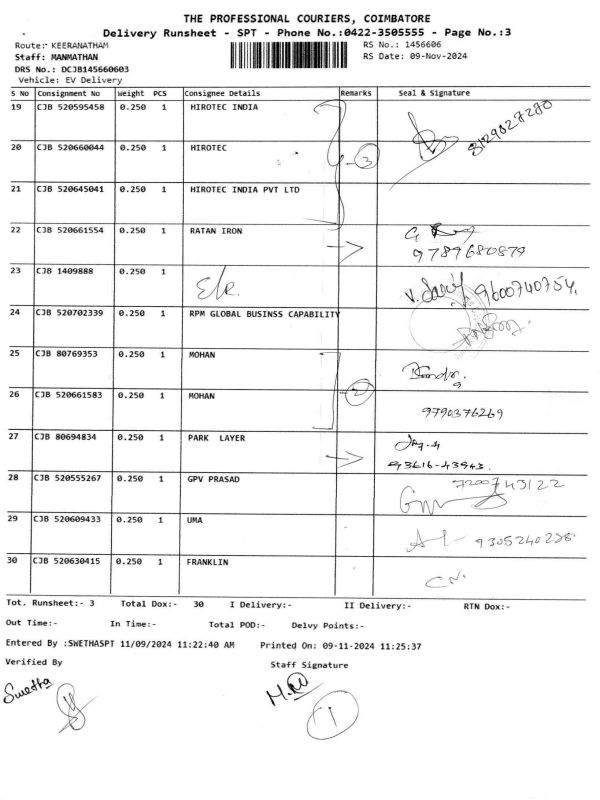 THE PROFESSIONAL COURIERS, COIMBATORE
Delivery Runsheet - SPT - Phone No.:0422-3505555 - Page No.:3
Route:- KEERANATHAM RS No.: 1456606
Staff: MANMATHAN RS Date: 09-Nov-2024
DRS No.: DCJB145660603
Vehicle: EV Delivery
S No Consignment No Weight PCS Consignee Details Remarks Seal & Signature
19 CJB 520595458 0.250 1 HIROTEC INDIA 8129027280
20 CJB 520660044 0.250 1 HIROTEC 3
21 CJB 520645041 0.250 1 HIROTEC INDIA PVT LTD
22 CJB 520661554 0.250 1 RATAN IRON
9789680879
23 CJB 1409888 0.250 1 9600740754.
24 CJB 520702339 0.250 1 RPM GLOBAL BUSINSS CAPABILITY
25 CJB 80769353 0.250 1 MOHAN
26 CJB 520661583 0.250 1 MOHAN 2 9790376269
27 CJB 80694834 0.250 1 PARK LAYER
93616-43943.
28 CJB 520555267 0.250 1 GPV PRASAD 7200743122
29 CJB 520609433 0.250 1 UMA 9305240286
30 CJB 520630415 0.250 1 FRANKLIN
Tot. Runsheet:- 3 Total Dox:- 30 I Delivery:- II Delivery:- RTN Dox:-
Out Time:- In Time:- Total POD:- Delvy Points:-
Entered By :SWETHASPT 11/09/2024 11:22:40 AM Printed On: 09-11-2024 11:25:37
Verified By Staff Signature
Swetha
11